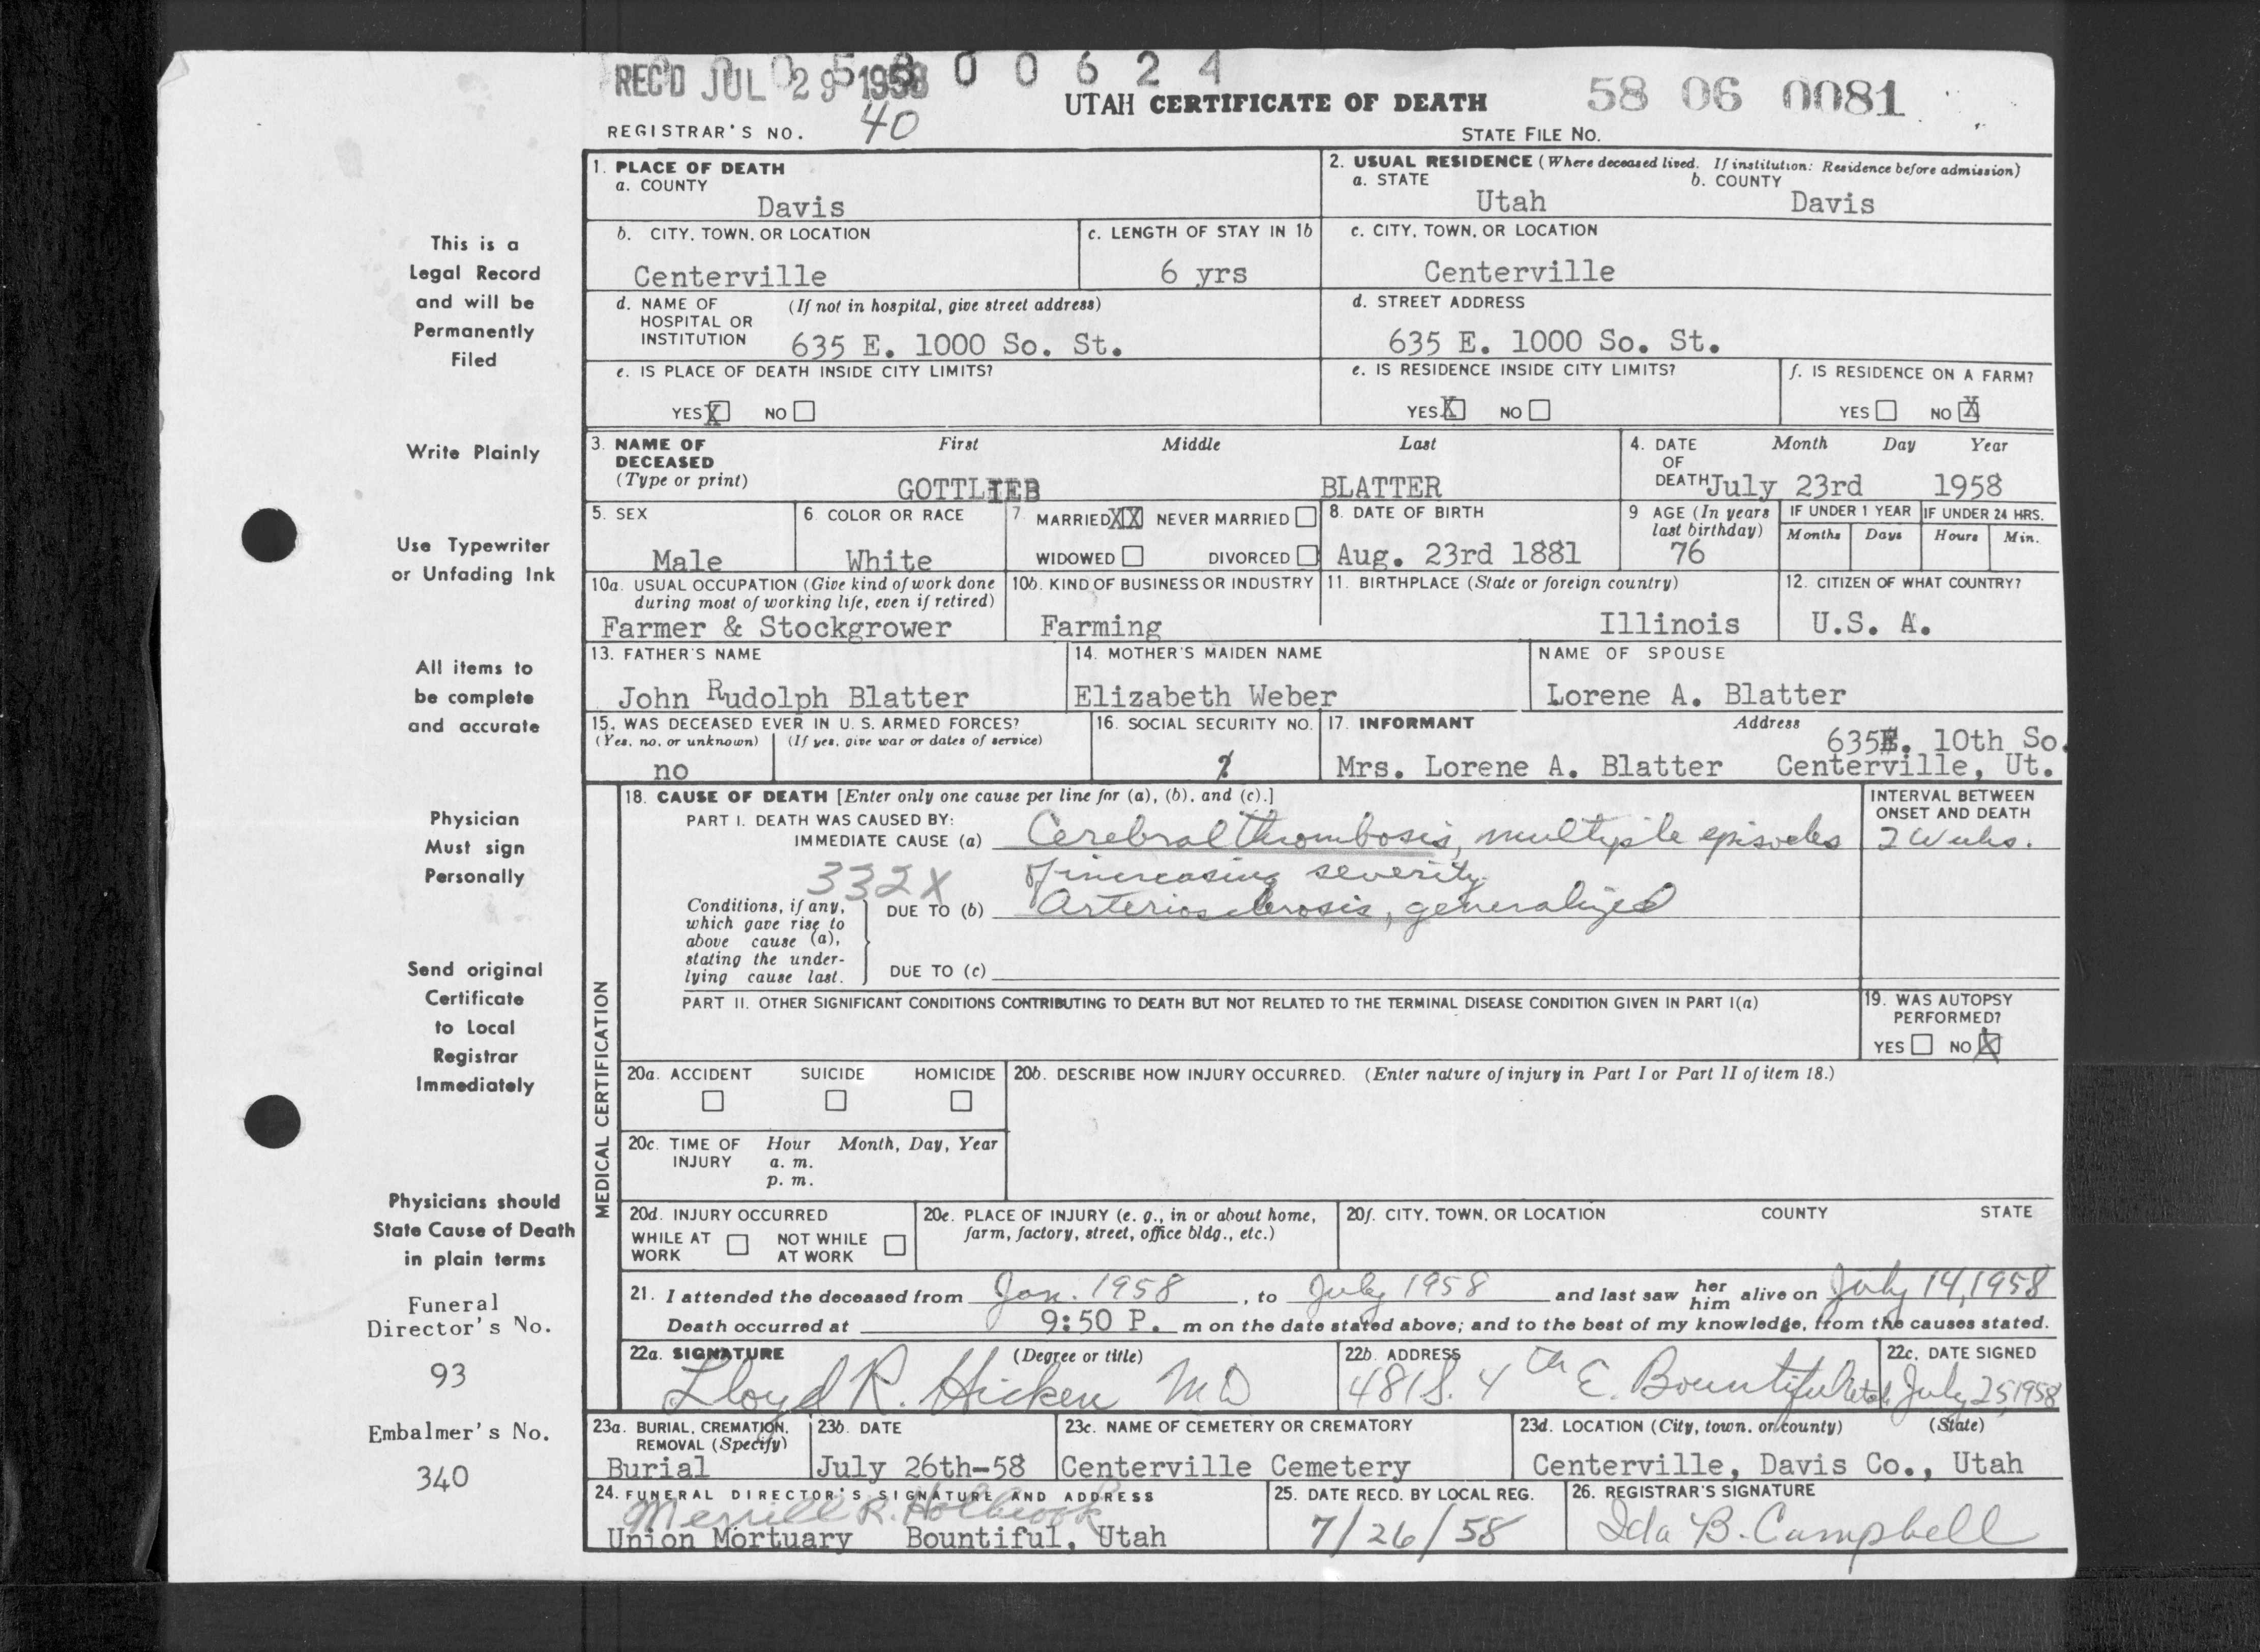 REC'D JUL 29 1958 0 0 6 2 4
UTAH CERTIFICATE OF DEATH
58 06 0081
REGISTRAR'S NO. 40
STATE FILE NO.
This is a
Legal Record
and will be
Permanently
Filed
Write Plainly
Use Typewriter
or Unfading Ink
All items to
be complete
and accurate
Physician
Must sign
Personally
Send original
Certificate
to Local
Registrar
Immediately
Physicians should
State Cause of Death
in plain terms
Funeral
Director's No.
93
Embalmer's No.
340
1. PLACE OF DEATH
a. COUNTY
Davis
2. USUAL RESIDENCE (Where deceased lived. If institution: Residence before admission)
a. STATE b. COUNTY
Utah Davis
b. CITY, TOWN, OR LOCATION
Centerville
c. LENGTH OF STAY IN 1b
6 yrs
c. CITY, TOWN, OR LOCATION
Centerville
d. NAME OF (If not in hospital, give street address)
HOSPITAL OR
INSTITUTION 635 E. 1000 So. St.
d. STREET ADDRESS
635 E. 1000 So. St.
e. IS PLACE OF DEATH INSIDE CITY LIMITS?
YES X NO
e. IS RESIDENCE INSIDE CITY LIMITS?
YES X NO
f. IS RESIDENCE ON A FARM?
YES NO X
3. NAME OF First Middle Last
DECEASED
(Type or print) GOTTLIEB BLATTER
4. DATE Month Day Year
OF
DEATH July 23rd 1958
5. SEX
Male
6. COLOR OR RACE
White
7. MARRIED XX NEVER MARRIED
WIDOWED DIVORCED
8. DATE OF BIRTH
Aug. 23rd 1881
9 AGE (In years
last birthday)
76
IF UNDER 1 YEAR IF UNDER 24 HRS.
Months Days Hours Min.
10a. USUAL OCCUPATION (Give kind of work done
during most of working life, even if retired)
Farmer & Stockgrower
10b. KIND OF BUSINESS OR INDUSTRY
Farming
11. BIRTHPLACE (State or foreign country)
Illinois
12. CITIZEN OF WHAT COUNTRY?
U.S. A.
13. FATHER'S NAME
John Rudolph Blatter
14. MOTHER'S MAIDEN NAME
Elizabeth Weber
NAME OF SPOUSE
Lorene A. Blatter
15. WAS DECEASED EVER IN U. S. ARMED FORCES?
(Yes, no, or unknown) (If yes, give war or dates of service)
no
16. SOCIAL SECURITY NO.
?
17. INFORMANT Address
635E. 10th So.
Mrs. Lorene A. Blatter Centerville, Ut.
MEDICAL CERTIFICATION
18. CAUSE OF DEATH [Enter only one cause per line for (a), (b), and (c).]
PART I. DEATH WAS CAUSED BY:
IMMEDIATE CAUSE (a) Cerebral thrombosis, multiple episodes
332X of increasing severity
Conditions, if any,
which gave rise to
above cause (a),
stating the under-
lying cause last.
DUE TO (b) Arteriosclerosis, generalized
DUE TO (c)
INTERVAL BETWEEN
ONSET AND DEATH
2 Weeks.
PART II. OTHER SIGNIFICANT CONDITIONS CONTRIBUTING TO DEATH BUT NOT RELATED TO THE TERMINAL DISEASE CONDITION GIVEN IN PART I(a)
19. WAS AUTOPSY
PERFORMED?
YES NO X
20a. ACCIDENT SUICIDE HOMICIDE
20b. DESCRIBE HOW INJURY OCCURRED. (Enter nature of injury in Part I or Part II of item 18.)
20c. TIME OF Hour Month, Day, Year
INJURY a. m.
p. m.
20d. INJURY OCCURRED
WHILE AT NOT WHILE
WORK AT WORK
20e. PLACE OF INJURY (e. g., in or about home,
farm, factory, street, office bldg., etc.)
20f. CITY, TOWN, OR LOCATION COUNTY STATE
21. I attended the deceased from Jan. 1958, to July 1958 and last saw her him alive on July 14, 1958
Death occurred at 9:50 P. m on the date stated above; and to the best of my knowledge, from the causes stated.
22a. SIGNATURE (Degree or title)
Lloyd R. Hicken MD
22b. ADDRESS
481 S. 4th E. Bountiful Utah
22c. DATE SIGNED
July 25, 1958
23a. BURIAL, CREMATION,
REMOVAL (Specify)
Burial
23b. DATE
July 26th-58
23c. NAME OF CEMETERY OR CREMATORY
Centerville Cemetery
23d. LOCATION (City, town, or county) (State)
Centerville, Davis Co., Utah
24. FUNERAL DIRECTOR'S SIGNATURE AND ADDRESS
Merrill R. Holbrook
Union Mortuary Bountiful, Utah
25. DATE RECD. BY LOCAL REG.
7/26/58
26. REGISTRAR'S SIGNATURE
Ida B. Campbell